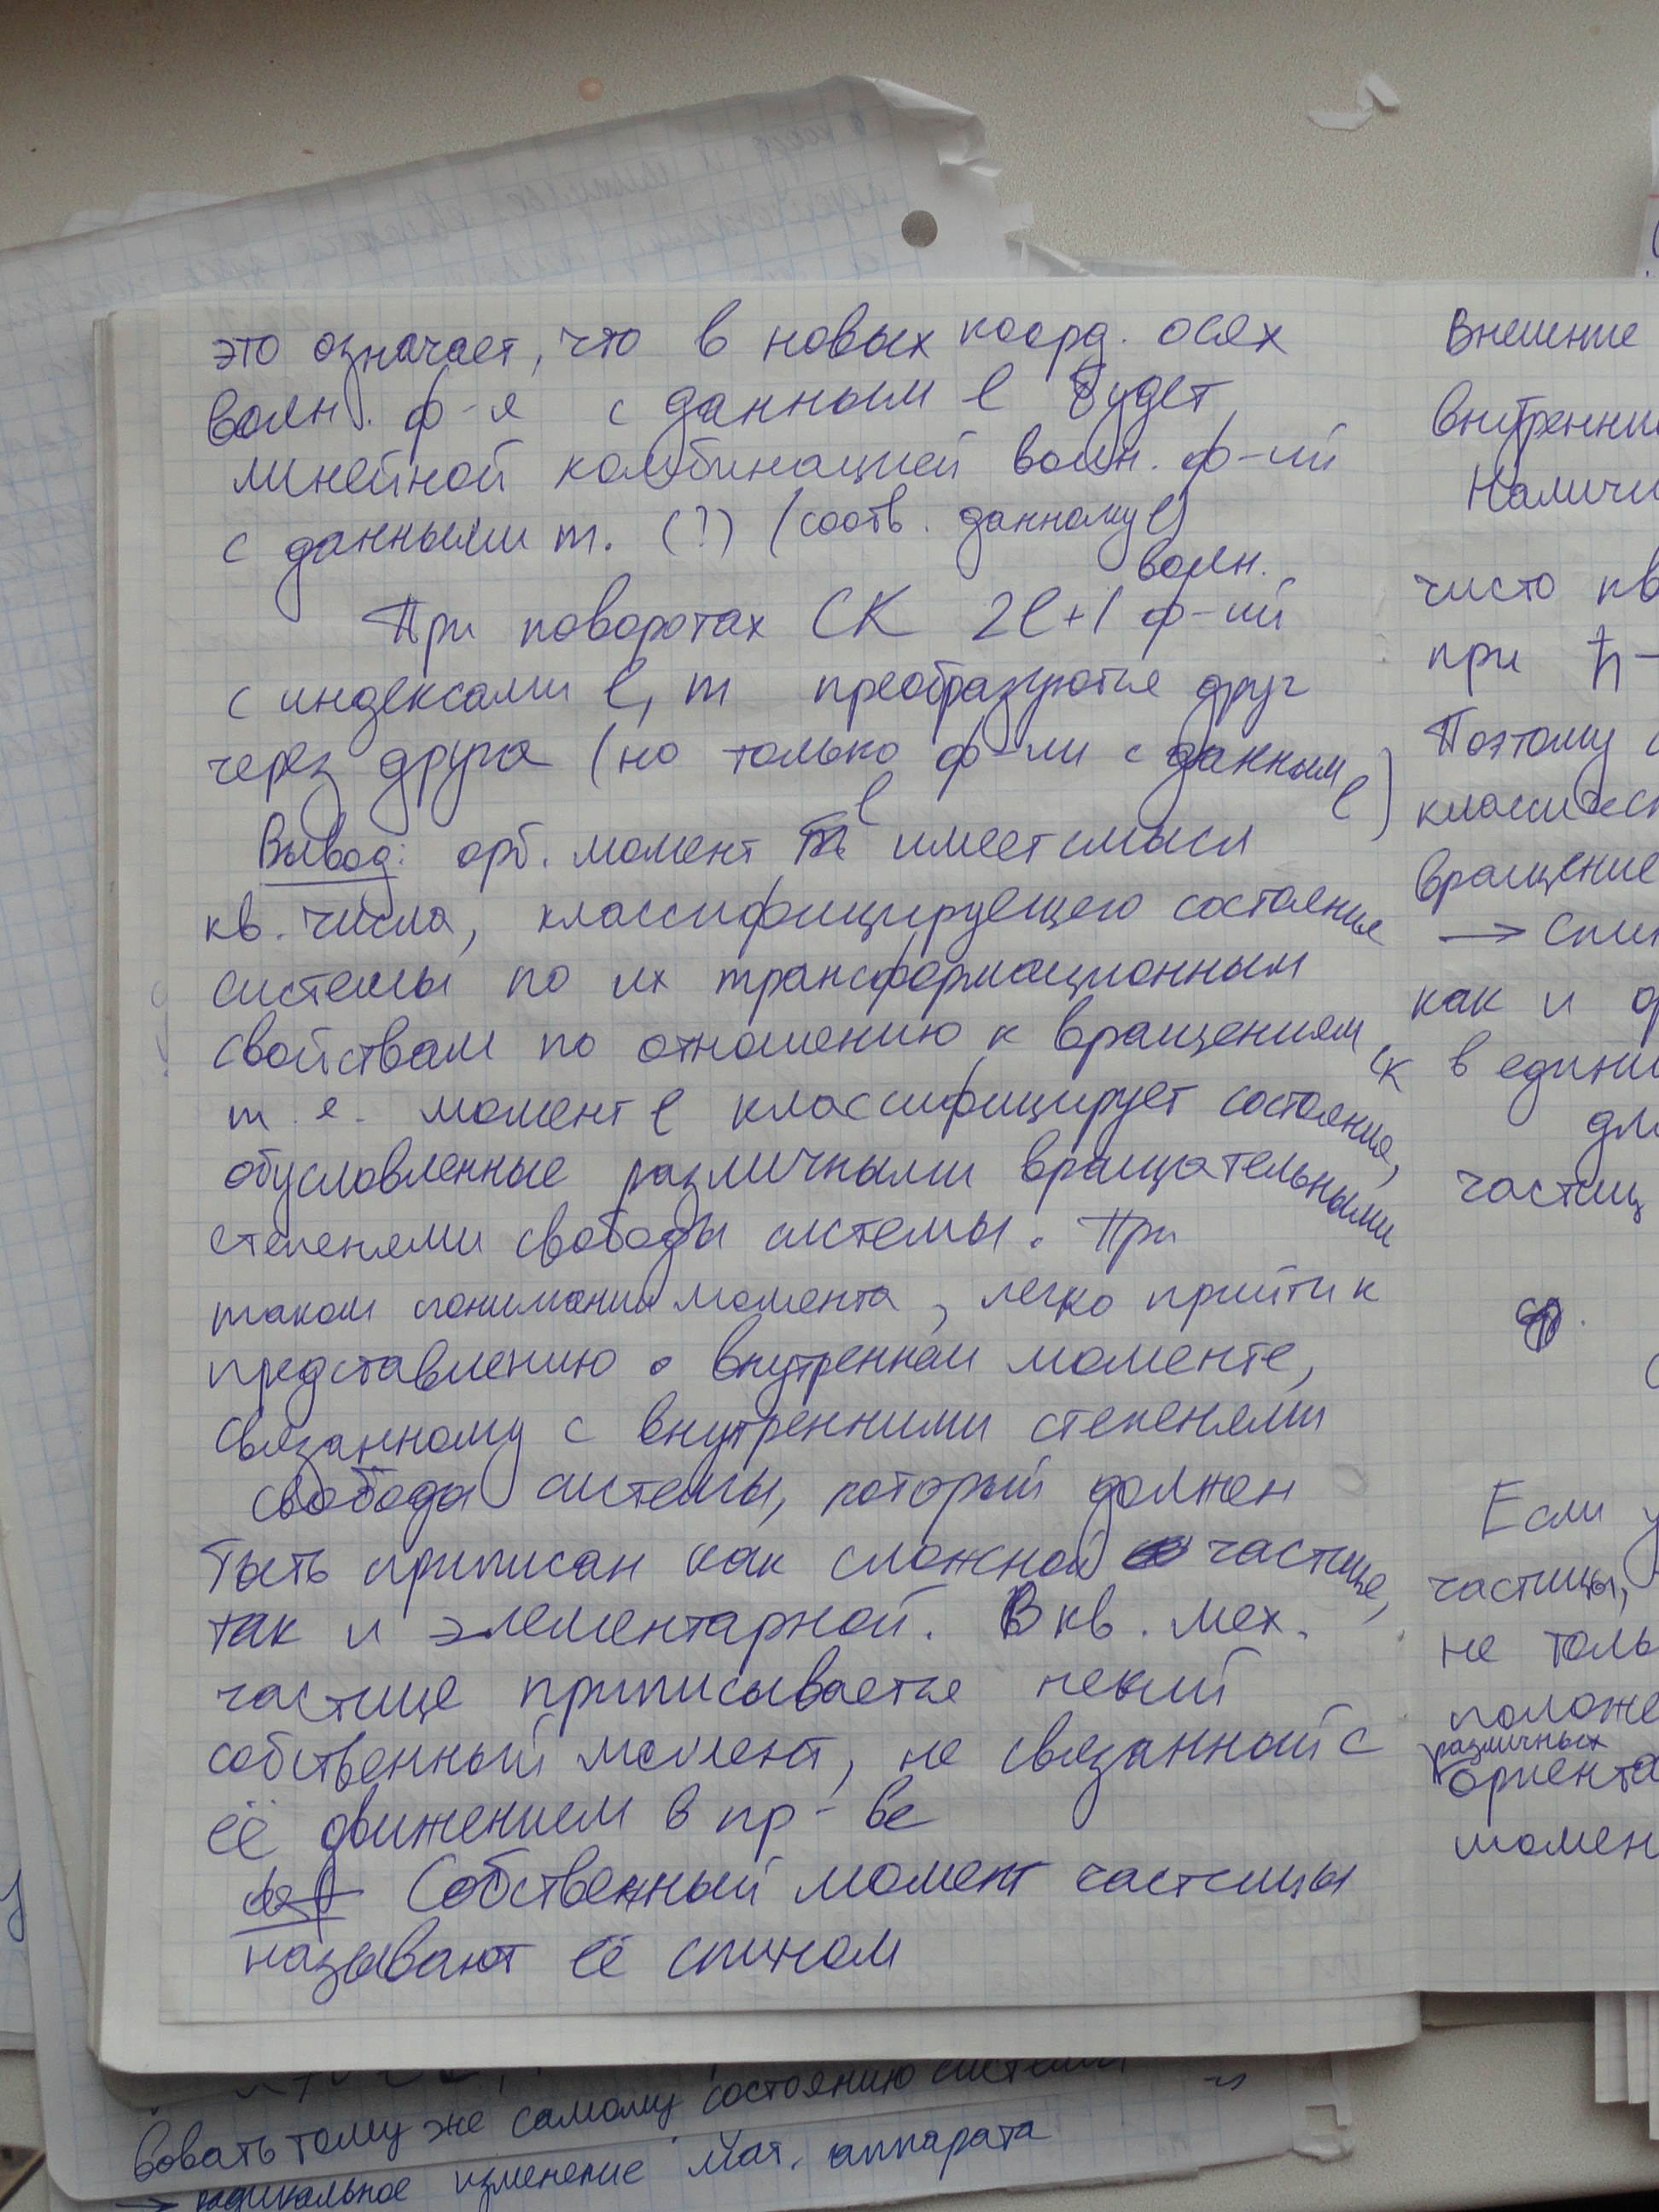 это означает, что в новых коорд. осях
волн. ф-я с данным l будет
линейной комбинацией волн. ф-ий
с данными m. (!) (соотв. данному l)
При поворотах СК 2l+1 волн. ф-ий
с индексами l, m преобразуются друг
через друга (но только ф-ли с данным l)
Вывод: орб. момент l имеет смысл
кв. числа, классифицирующего состояния
системы по их трансформационным
свойствам по отношению к вращениям СК
т.е. момент l классифицирует состояния,
обусловленные различными вращательными
степенями свободы системы. При
таком понимании момента, легко прийти к
представлению о внутреннем моменте,
связанному с внутренними степенями
свободы системы, который должен
быть приписан как сложной частице,
так и элементарной. В кв. мех.
частице приписывается некий
собственный момент, не связанный с
её движением в пр-ве
def Собственный момент частицы
называют её спином
Внешние
внутренни
Наличи
чисто кв
при ħ-
Поэтому с
классическ
вращение
→ спин
как и ор
в едини
дл
частиц
Если у
частицы,
не толь
положе
различных
ориента
момен
вовать тому же самому состоянию системы
→ радикальное изменение мат. аппарата